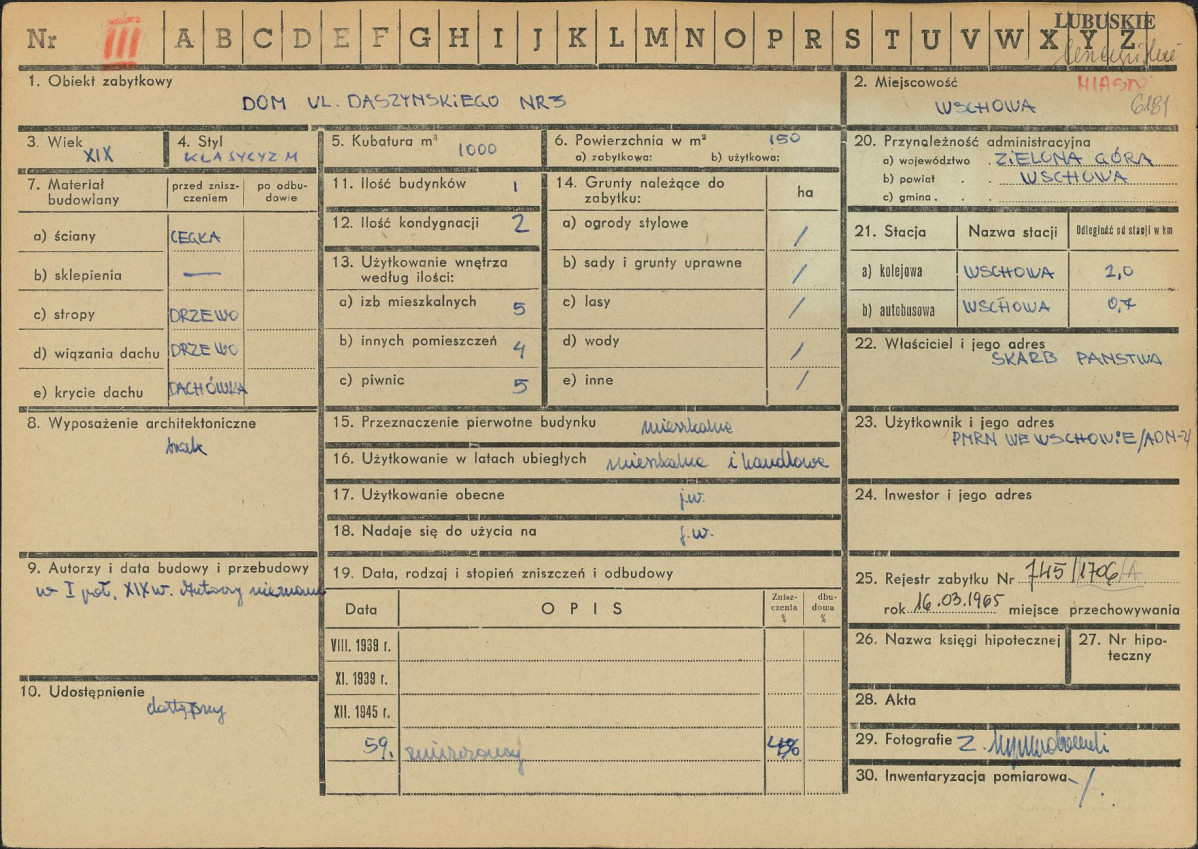 Nr III A B C D E F G H I J K L M N O P R S T U V W X Y Z
LUBUSKIE
1. Obiekt zabytkowy
DOM UL. DASZYNSKIEGO NR 5
2. Miejscowość
MIASTO
WSCHOWA
6181
3. Wiek
XIX
4. Styl
KLASYCYZM
5. Kubatura m³ 1000
6. Powierzchnia w m² 150
a) zabytkowa: b) użytkowa:
7. Materiał budowlany
przed zniszczeniem
po odbudowie
a) ściany CEGŁA
b) sklepienia —
c) stropy DRZEWO
d) wiązania dachu DRZEWO
e) krycie dachu DACHÓWKA
8. Wyposażenie architektoniczne
brak
9. Autorzy i data budowy i przebudowy
w I poł. XIX w. Autorzy nieznani
10. Udostępnienie
dostępny
11. Ilość budynków 1
12. Ilość kondygnacji 2
13. Użytkowanie wnętrza
według ilości:
a) izb mieszkalnych 5
b) innych pomieszczeń 4
c) piwnic 5
14. Grunty należące do
zabytku:
ha
a) ogrody stylowe /
b) sady i grunty uprawne /
c) lasy /
d) wody /
e) inne /
15. Przeznaczenie pierwotne budynku mieszkalne
16. Użytkowanie w latach ubiegłych mieszkalne i handlowe
17. Użytkowanie obecne j.w.
18. Nadaje się do użycia na j.w.
19. Data, rodzaj i stopień zniszczeń i odbudowy
Data OPIS Zniszczenia % dbudowa %
VIII. 1939 r.
XI. 1939 r.
XII. 1945 r.
59. zniszczony
20. Przynależność administracyjna
a) województwo . ZIELONA GÓRA
b) powiat . . WSCHOWA
c) gmina . .
21. Stacja Nazwa stacji Odległość od stacji w km
a) kolejowa WSCHOWA 2,0
b) autobusowa WSCHOWA 0,7
22. Właściciel i jego adres
SKARB PAŃSTWA
23. Użytkownik i jego adres
PMRN WE WSCHOWIE/ADM-4
24. Inwestor i jego adres
25. Rejestr zabytku Nr 745/1706/A
rok 16.03.1965 miejsce przechowywania
26. Nazwa księgi hipotecznej
27. Nr hipoteczny
28. Akta
29. Fotografie Z.
30. Inwentaryzacja pomiarowa - /.